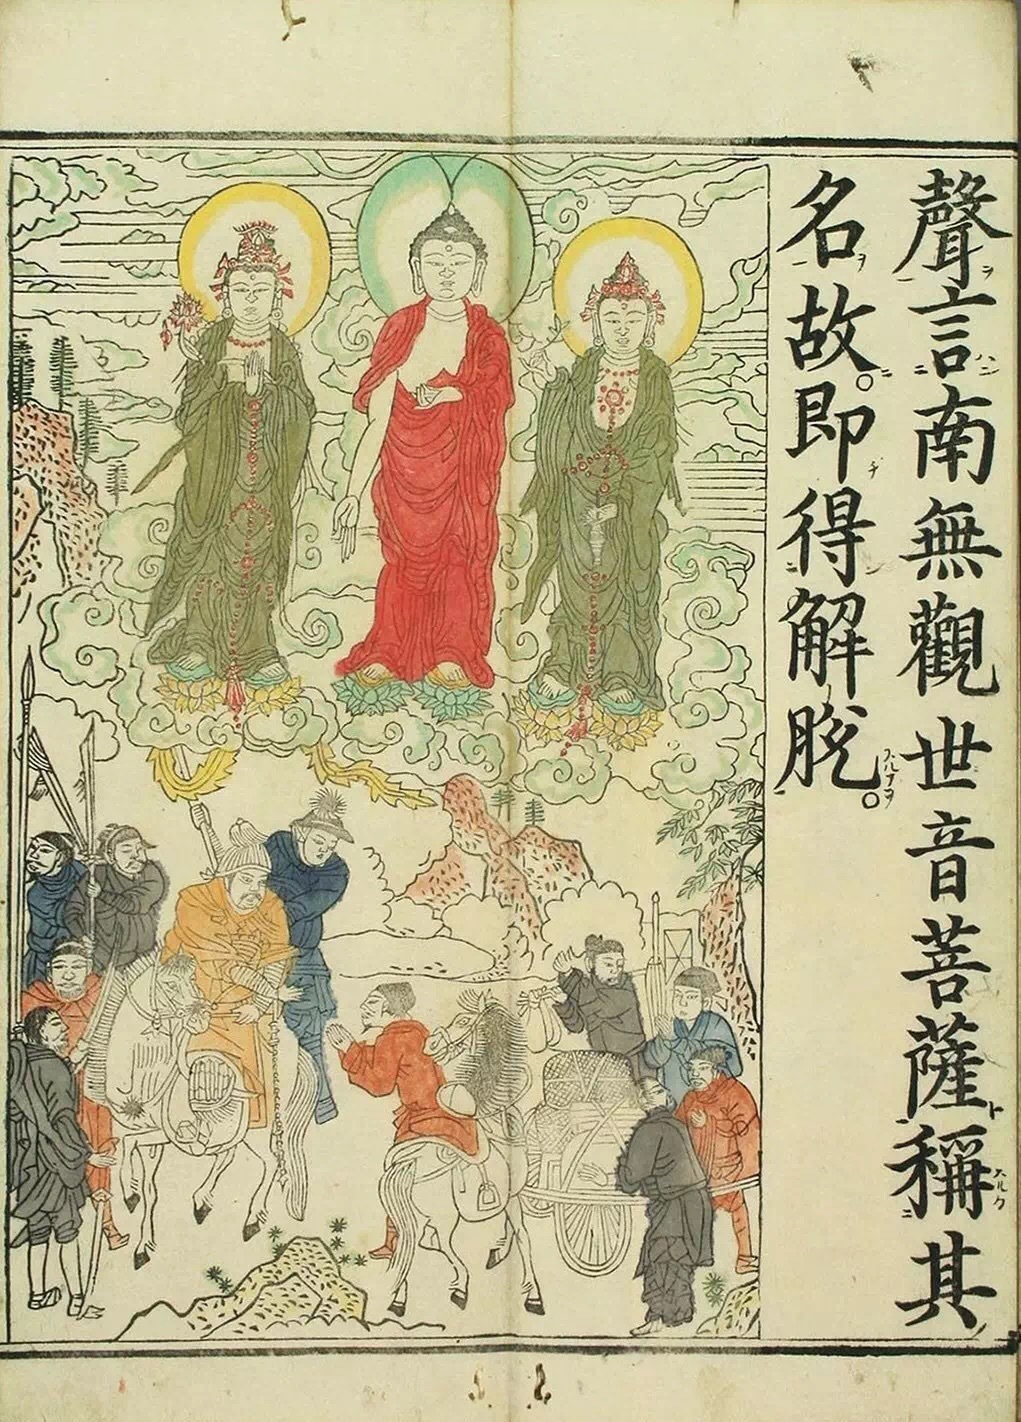 聲言南無觀世音菩薩稱其
名故。即得解脫。